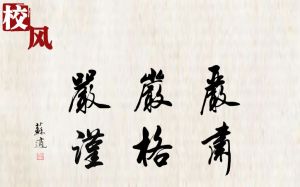 校风
嚴肅
嚴格
嚴謹
蘇適